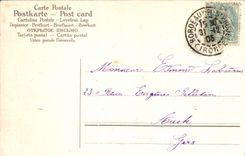 Carte Postale
Postkarte — Post card
Cartolina Postale — Levelező Lap
Dopisnice — Briefkaart — Brefkort
ОТКРЫТОЕ ПИСЬМО.
Tarjeta postal — Cartão postal
Union postale Universelle.
BORDEAUX
GIRONDE
Monsieur Edmond
23 Rue Eugène
Auch
Gers